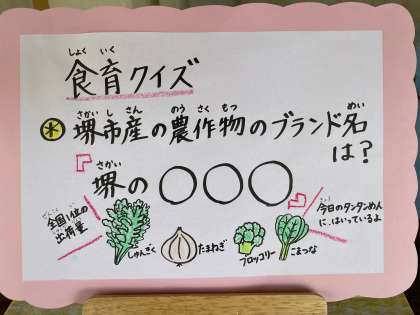 しょく いく
食育クイズ
さかい し さん のう さく もつ めい
堺市産の農作物のブランド名
は?
さかい
『堺の〇〇〇』
ぜんこく い
全国1位の
出荷量
しゅんぎく
たまねぎ
ブロッコリー
こまつな
今日のタンタンめん
に、はいっているよ